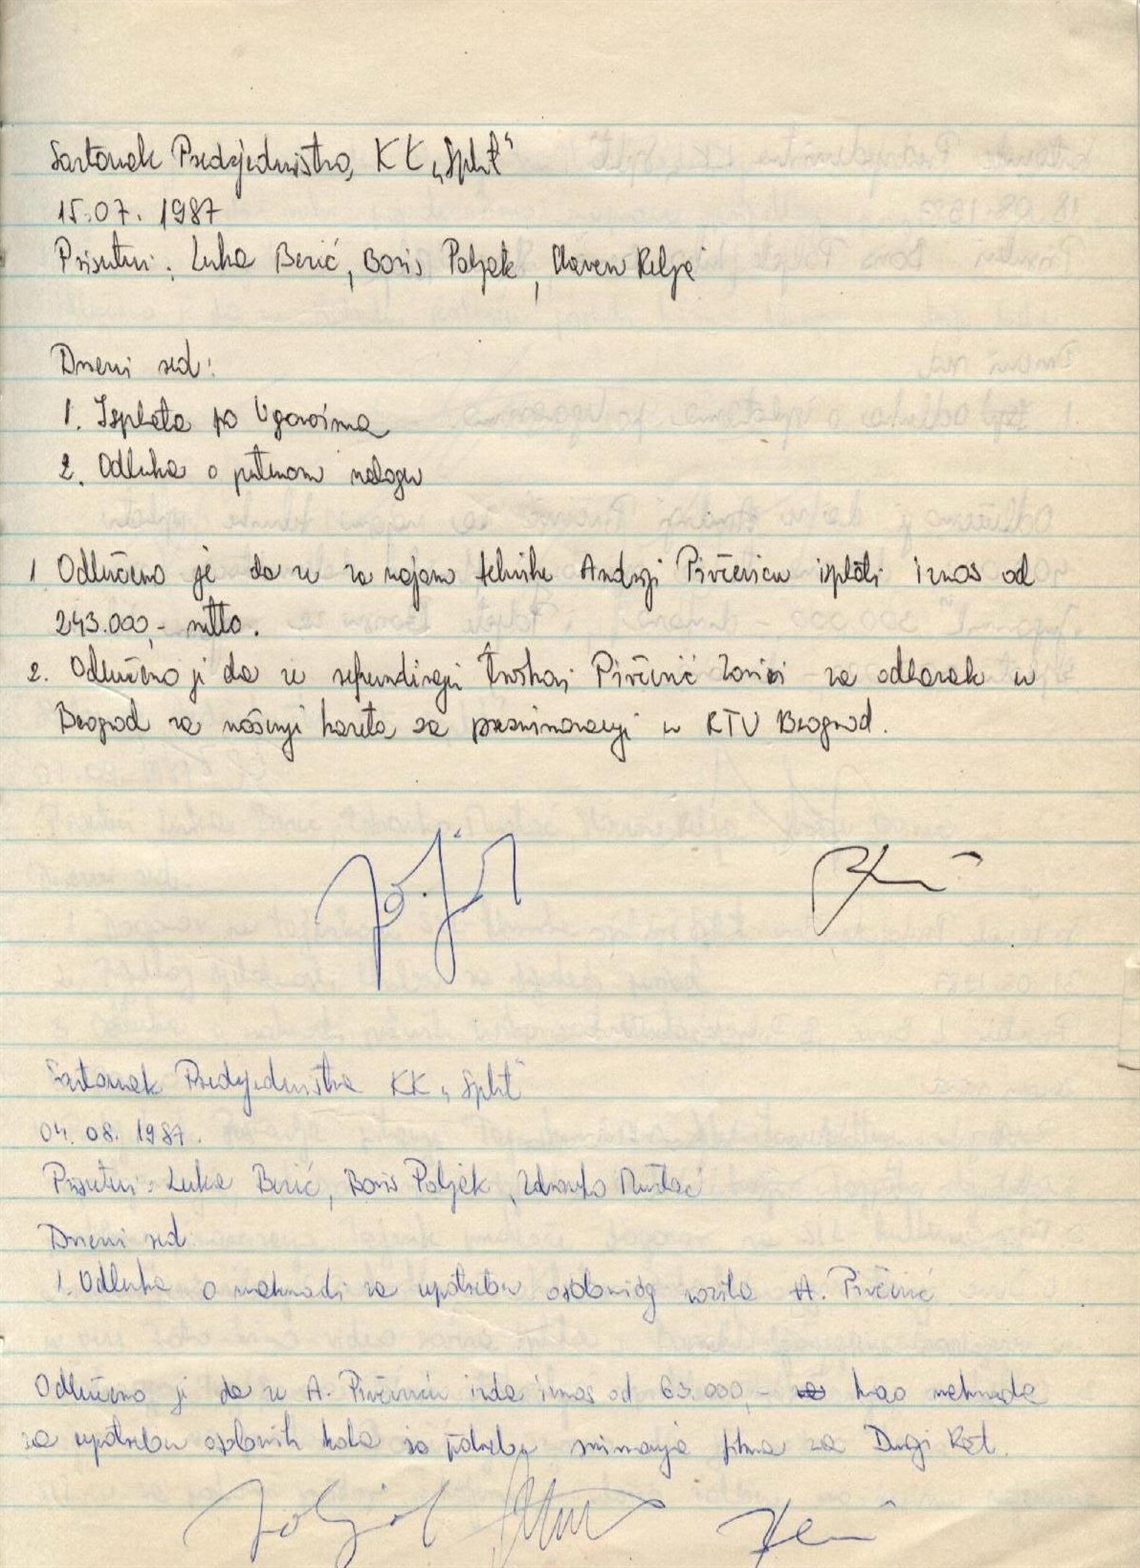 Sastanak Predsjedništva, KK „Split“
15.07. 1987
Prisutni: Luka Berić, Boris Poljak, Relja
Dnevni red:
1. Isplata po Ugovorima
2. Odluka o putnom nalogu
1 Odlučeno je da se za najam tehnike Andriji Pivčeviću isplati iznos od
243.000,- netto.
2. Odlučeno je da se refundiraju troškovi Pivčević za odlazak u
Beograd za nošenje kazeta sa presnimavanja u RTV Beograd.
Sastanak Predsjedništva KK „Split“
04. 08. 1987.
Prisutni: Luka Berić, Boris Poljak, Zdravko Mustać
Dnevni red
1. Odluka o naknadi za upotrebu osobnog vozila A. Pivčević
Odlučeno je da se A. Pivčeviću izda iznos od 63.000,- kao naknada
za upotrebu osobnih kola za potrebu snimanja filma za Dugi Rat.